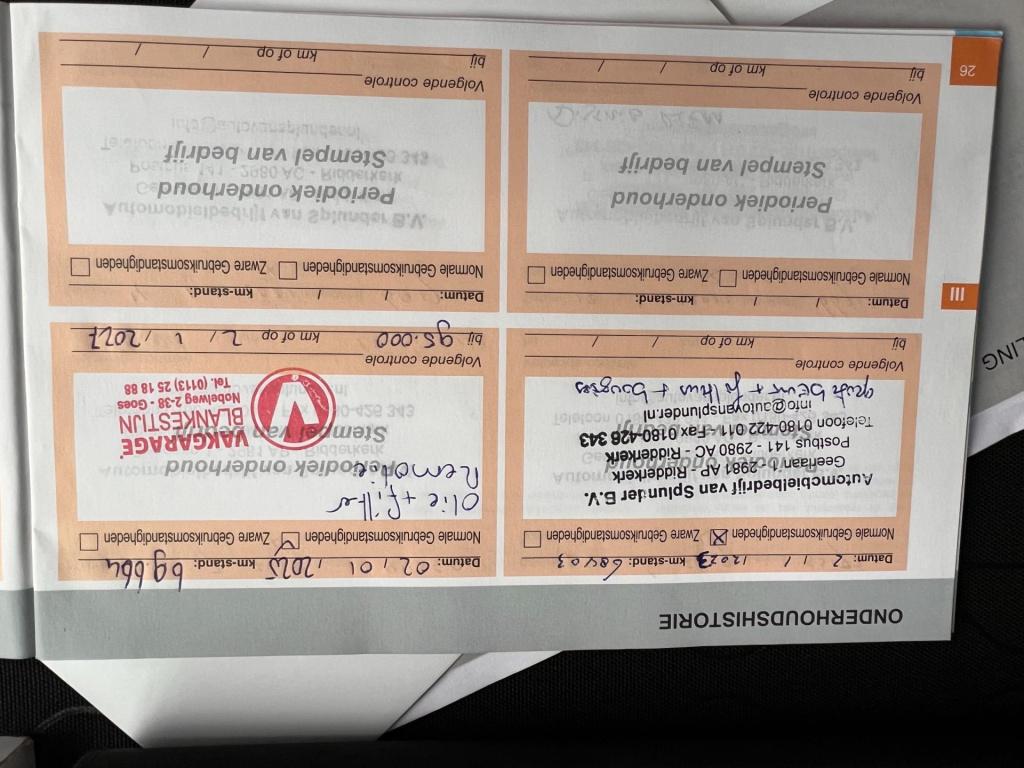 ONDERHOUDSHISTORIE
Datum: 2 / 1 / 2023 km-stand: 68403
Normale Gebruiksomstandigheden Zware Gebruiksomstandigheden
Periodiek onderhoud
Stempel van bedrijf
Automobielbedrijf van Splunder B.V.
Geerlaan - 2981 AP - Ridderkerk
Postbus 141 - 2980 AC - Ridderkerk
Telefoon 0180-422 011 - Fax 0180-426 343
info@autovansplunder.nl
beurt + filters + bougies
Volgende controle
bij km of op / /
Datum: 02 / 01 / 2025 km-stand: 69.664
Normale Gebruiksomstandigheden Zware Gebruiksomstandigheden
Olie + filter
Remolie
Periodiek onderhoud
Stempel van bedrijf
VAKGARAGE
BLANKESTIJN
Nobelweg 2-38 - Goes
Tel. (0113) 25 18 88
Volgende controle
bij 95.000 km of op 2 / 1 / 2027
III
Datum: / / km-stand:
Normale Gebruiksomstandigheden Zware Gebruiksomstandigheden
Periodiek onderhoud
Stempel van bedrijf
Volgende controle
bij km of op / /
Datum: / / km-stand:
Normale Gebruiksomstandigheden Zware Gebruiksomstandigheden
Periodiek onderhoud
Stempel van bedrijf
Volgende controle
bij km of op / /
26
LING